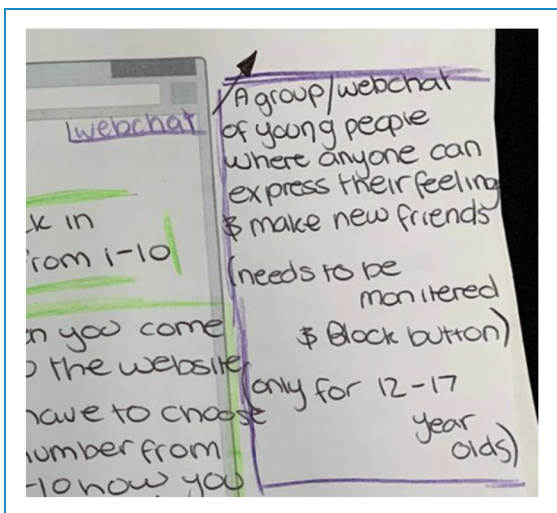 webchat
ck in
from 1-10
n you come
o the website
have to choose
number from
-10 how you
A group/webchat
of young people
where anyone can
express their feeling
$ make new friends
(needs to be
monitered
$ Block button)
(only for 12-17
year
olds)